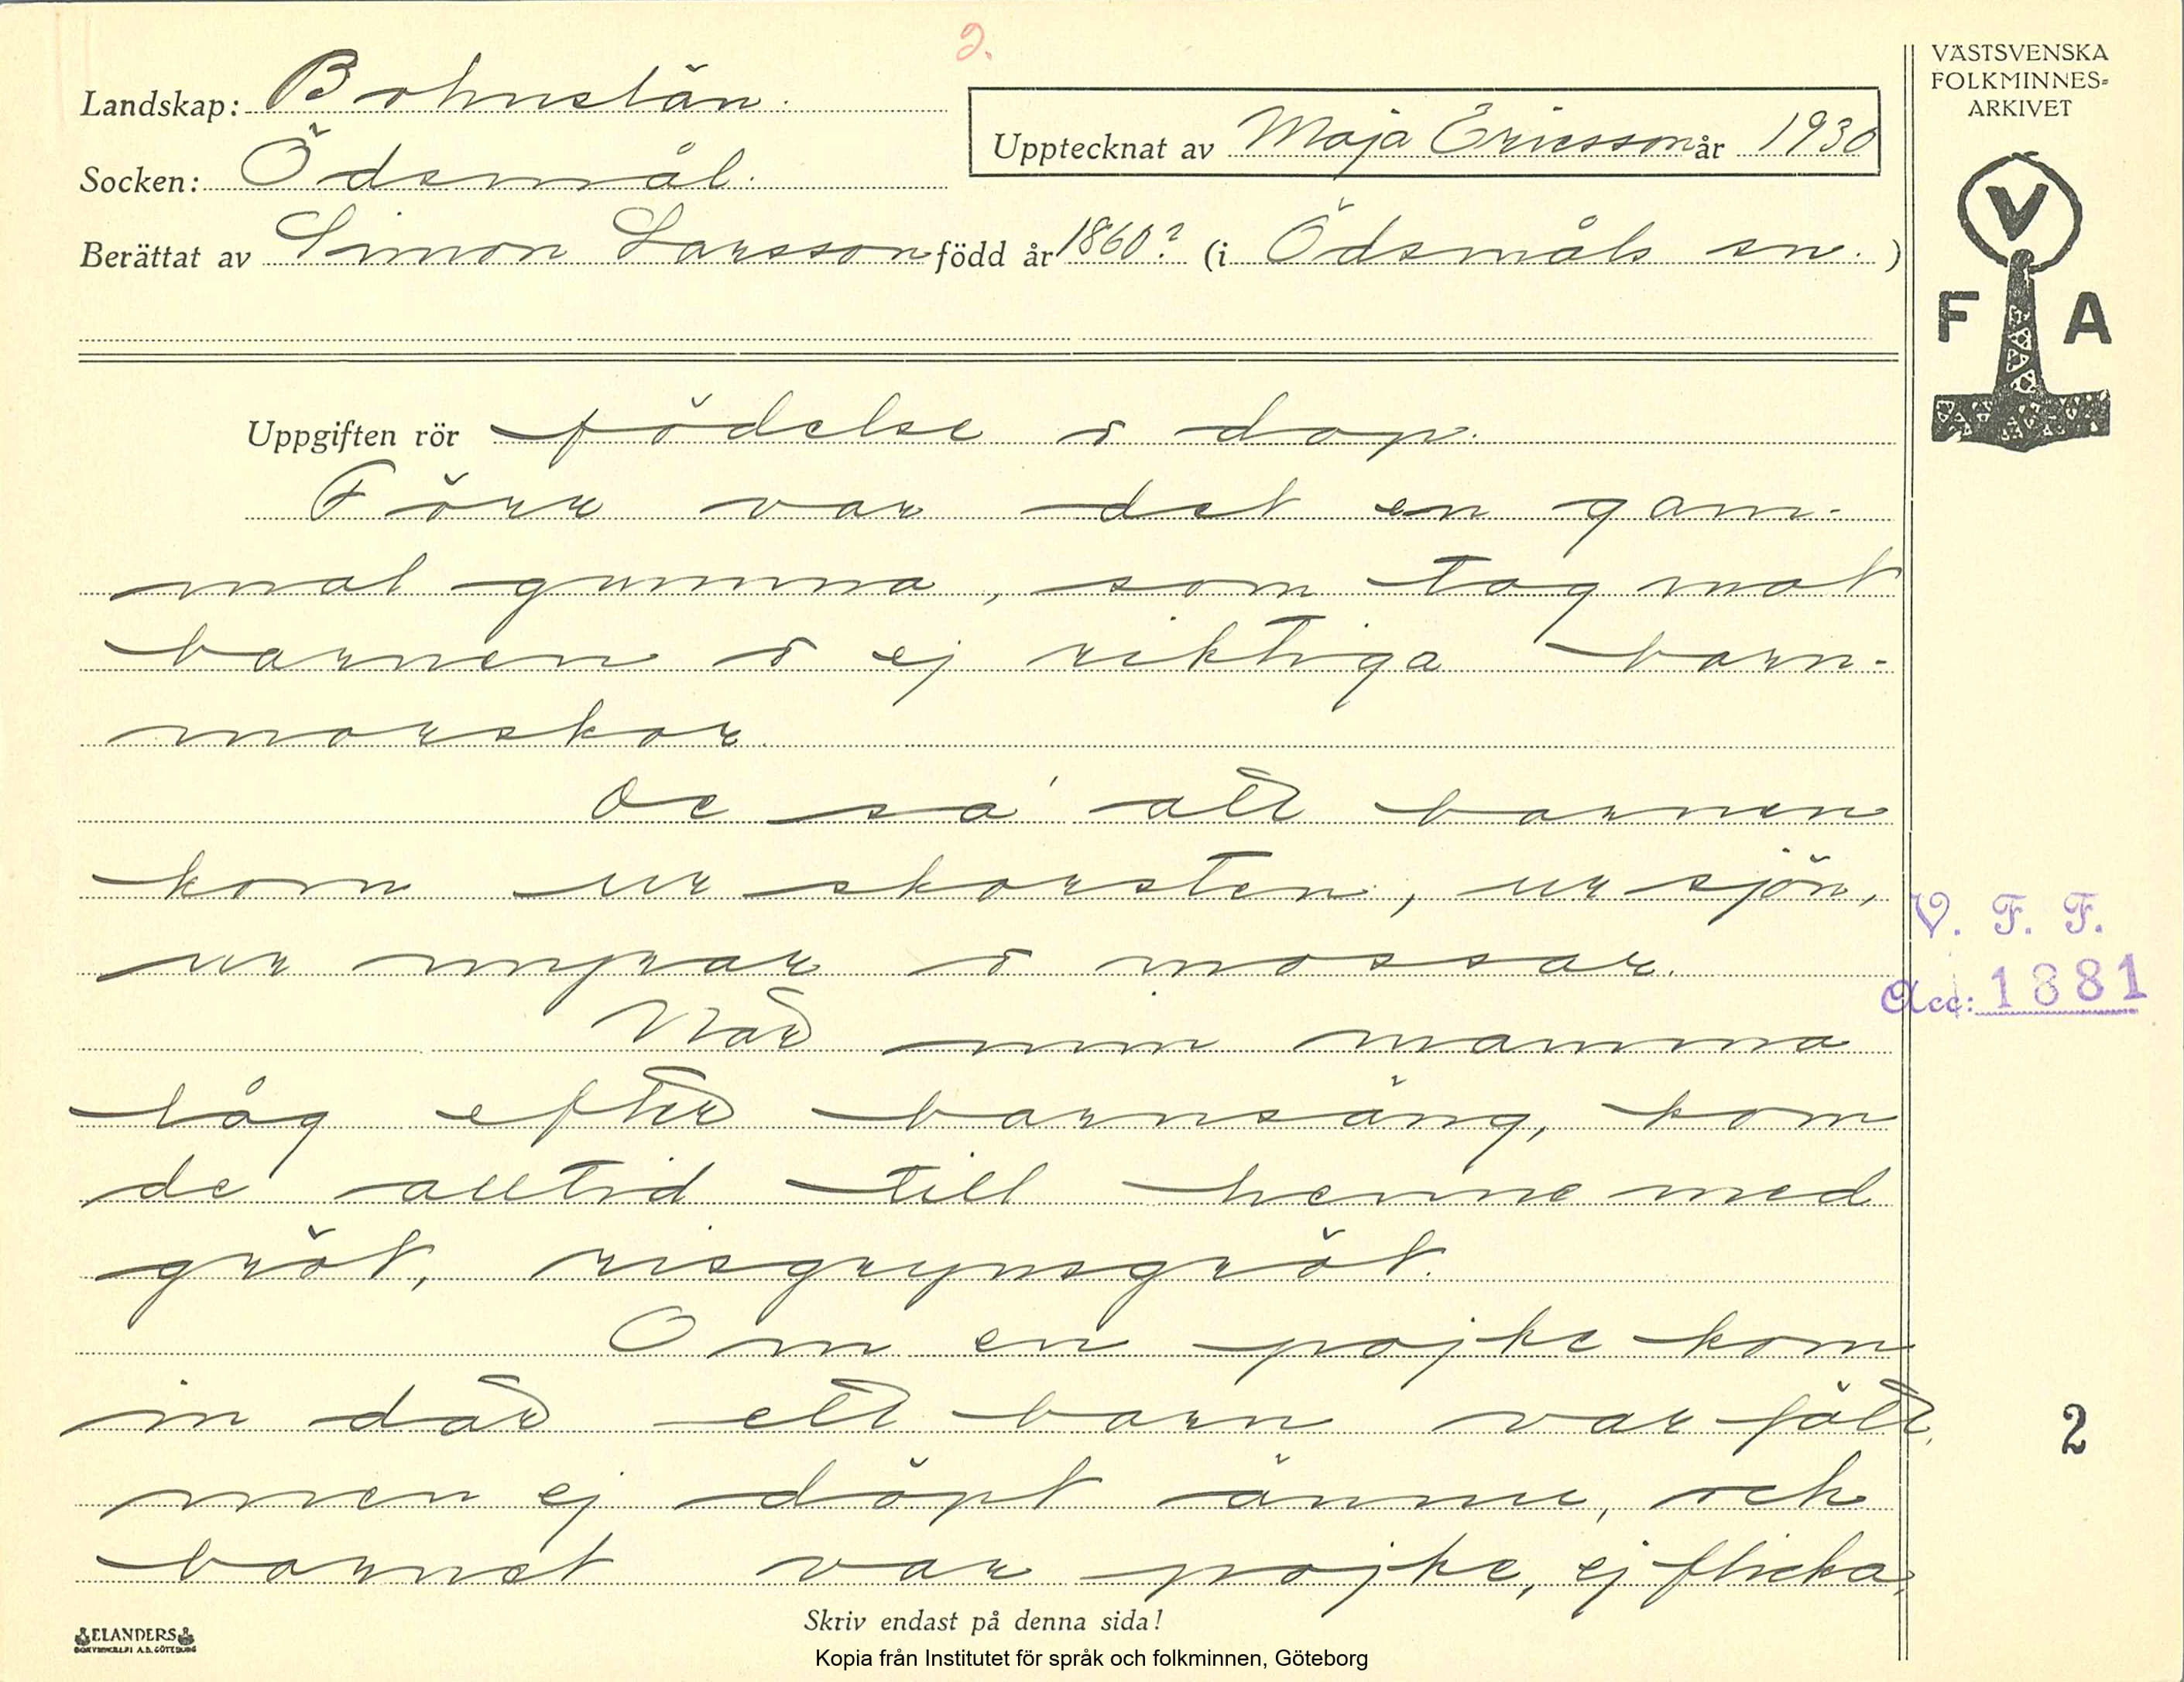 2.
VÄSTSVENSKA
FOLKMINNES=
ARKIVET
Landskap: Bohuslän.
Upptecknat av Maja Ericsson år 1930
Socken: Ödsmål.
Berättat av Simon Larsson född år 1860? (i Ödsmåls sn.)
V
F A
Uppgiften rör födelse o dop.
Förr var det en gam-
mal gumma, som tog mot
barnen o ej riktiga barn-
morskor.
De sa' att barnen
kom ur skorsten, ur sjön,
ur myrar o mossar.
V. F. F.
Acc: 1881
När min mamma
låg efter barnsäng, kom
de alltid till henne med
gröt, risgrynsgröt.
Om en pojke kom
in där ett barn var fött,
2
men ej döpt ännu, och
barnet var pojke, ej flicka,
Skriv endast på denna sida!
ELANDERS
BOKTRYCKERI A.B. GÖTEBORG
Kopia från Institutet för språk och folkminnen, Göteborg